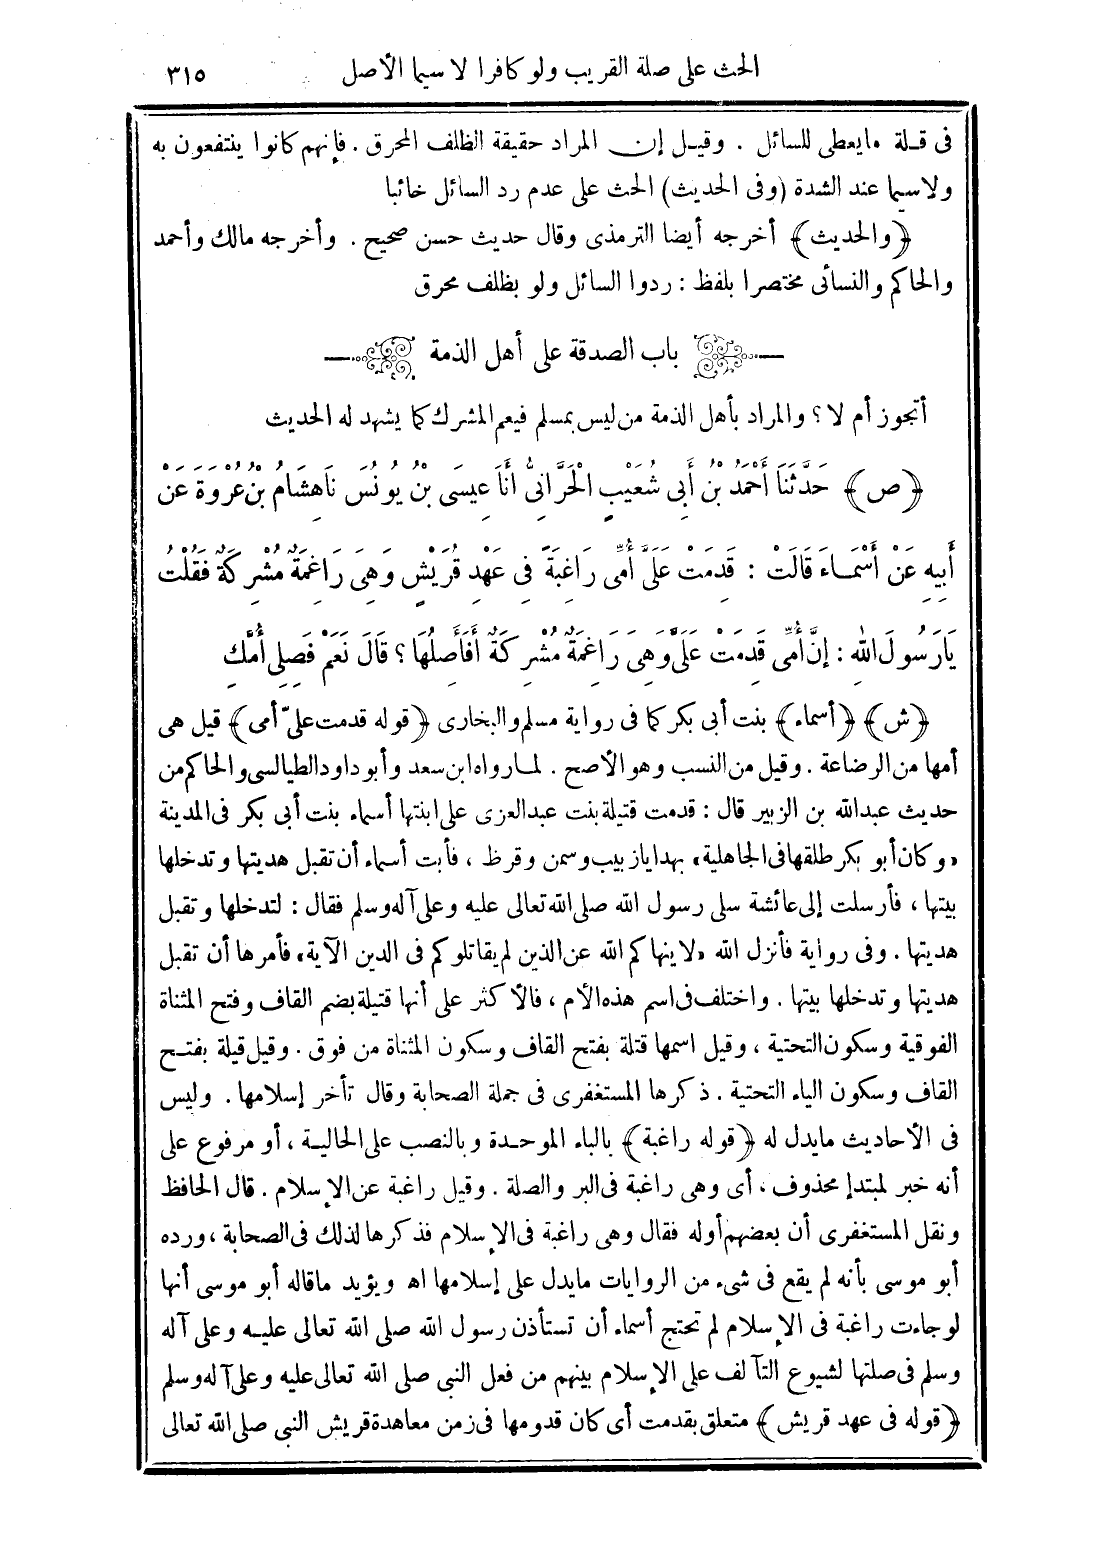 الحث على صلة القريب ولو كافرا لا سيما الأصل ٣١٥
فى قلة مايعطى للسائل . وقيل إن المراد حقيقة الظلف المحرق . فإنهم كانوا ينتفعون به
ولاسيما عند الشدة (وفى الحديث) الحث على عدم رد السائل خائبا
﴿والحديث﴾ أخرجه أيضا الترمذى وقال حديث حسن صحيح . وأخرجه مالك وأحمد
والحاكم والنسائى مختصرا بلفظ : ردوا السائل ولو بظلف محرق
باب الصدقة على أهل الذمة
أتجوز أم لا ؟ والمراد بأهل الذمة من ليس بمسلم فيعم المشرك كما يشهد له الحديث
﴿ص﴾ حَدَّثَنَا أَحْمَدُ بْنُ أَبِى شُعَيْبٍ الْحَرَّانِىُّ أَنَا عِيسَى بْنُ يُونُسَ نَا هِشَامُ بْنُ عُرْوَةَ عَنْ
أَبِيهِ عَنْ أَسْمَاءَ قَالَتْ : قَدِمَتْ عَلَىَّ أُمِّى رَاغِبَةً فِى عَهْدِ قُرَيْشٍ وَهِىَ رَاغِمَةٌ مُشْرِكَةٌ فَقُلْتُ
يَارَسُولَ اللهِ : إِنَّ أُمِّى قَدِمَتْ عَلَىَّ وَهِىَ رَاغِمَةٌ مُشْرِكَةٌ أَفَأَصِلُهَا ؟ قَالَ نَعَمْ فَصِلِى أُمَّكِ
﴿ش﴾ ﴿أسماء﴾ بنت أبى بكر كما فى رواية مسلم والبخارى ﴿قوله قدمت علىّ أمى﴾ قيل هى
أمها من الرضاعة . وقيل من النسب وهو الأصح . لما رواه ابن سعد وأبو داود الطيالسى والحاكم من
حديث عبدالله بن الزبير قال : قدمت قتيلة بنت عبدالعزى على ابنتها أسماء بنت أبى بكر فى المدينة
«وكان أبو بكر طلقها فى الجاهلية» بهدايا زبيب وسمن وقرظ ، فأبت أسماء أن تقبل هديتها وتدخلها
بيتها ، فأرسلت إلى عائشة سلى رسول الله صلى الله تعالى عليه وعلى آله وسلم فقال : لتدخلها وتقبل
هديتها . وفى رواية فأنزل الله «لاينهاكم الله عن الذين لم يقاتلوكم فى الدين الآية» فأمرها أن تقبل
هديتها وتدخلها بيتها . واختلف فى اسم هذه الأم ، فالأكثر على أنها قتيلة بضم القاف وفتح المثناة
الفوقية وسكون التحتية ، وقيل اسمها قتلة بفتح القاف وسكون المثناة من فوق . وقيل قيلة بفتح
القاف وسكون الياء التحتية . ذكرها المستغفرى فى جملة الصحابة وقال تأخر إسلامها . وليس
فى الأحاديث مايدل له ﴿قوله راغبة﴾ بالباء الموحدة وبالنصب على الحالية ، أو مرفوع على
أنه خبر لمبتدإ محذوف ، أى وهى راغبة فى البر والصلة . وقيل راغبة عن الإسلام . قال الحافظ
ونقل المستغفرى أن بعضهم أوله فقال وهى راغبة فى الإسلام فذكرها لذلك فى الصحابة ، ورده
أبو موسى بأنه لم يقع فى شىء من الروايات مايدل على إسلامها اه ويؤيد ماقاله أبو موسى أنها
لو جاءت راغبة فى الإسلام لم تحتج أسماء أن تستأذن رسول الله صلى الله تعالى عليه وعلى آله
وسلم فى صلتها لشيوع التآلف على الإسلام بينهم من فعل النبى صلى الله تعالى عليه وعلى آله وسلم
﴿قوله فى عهد قريش﴾ متعلق بقدمت أى كان قدومها فى زمن معاهدة قريش النبى صلى الله تعالى